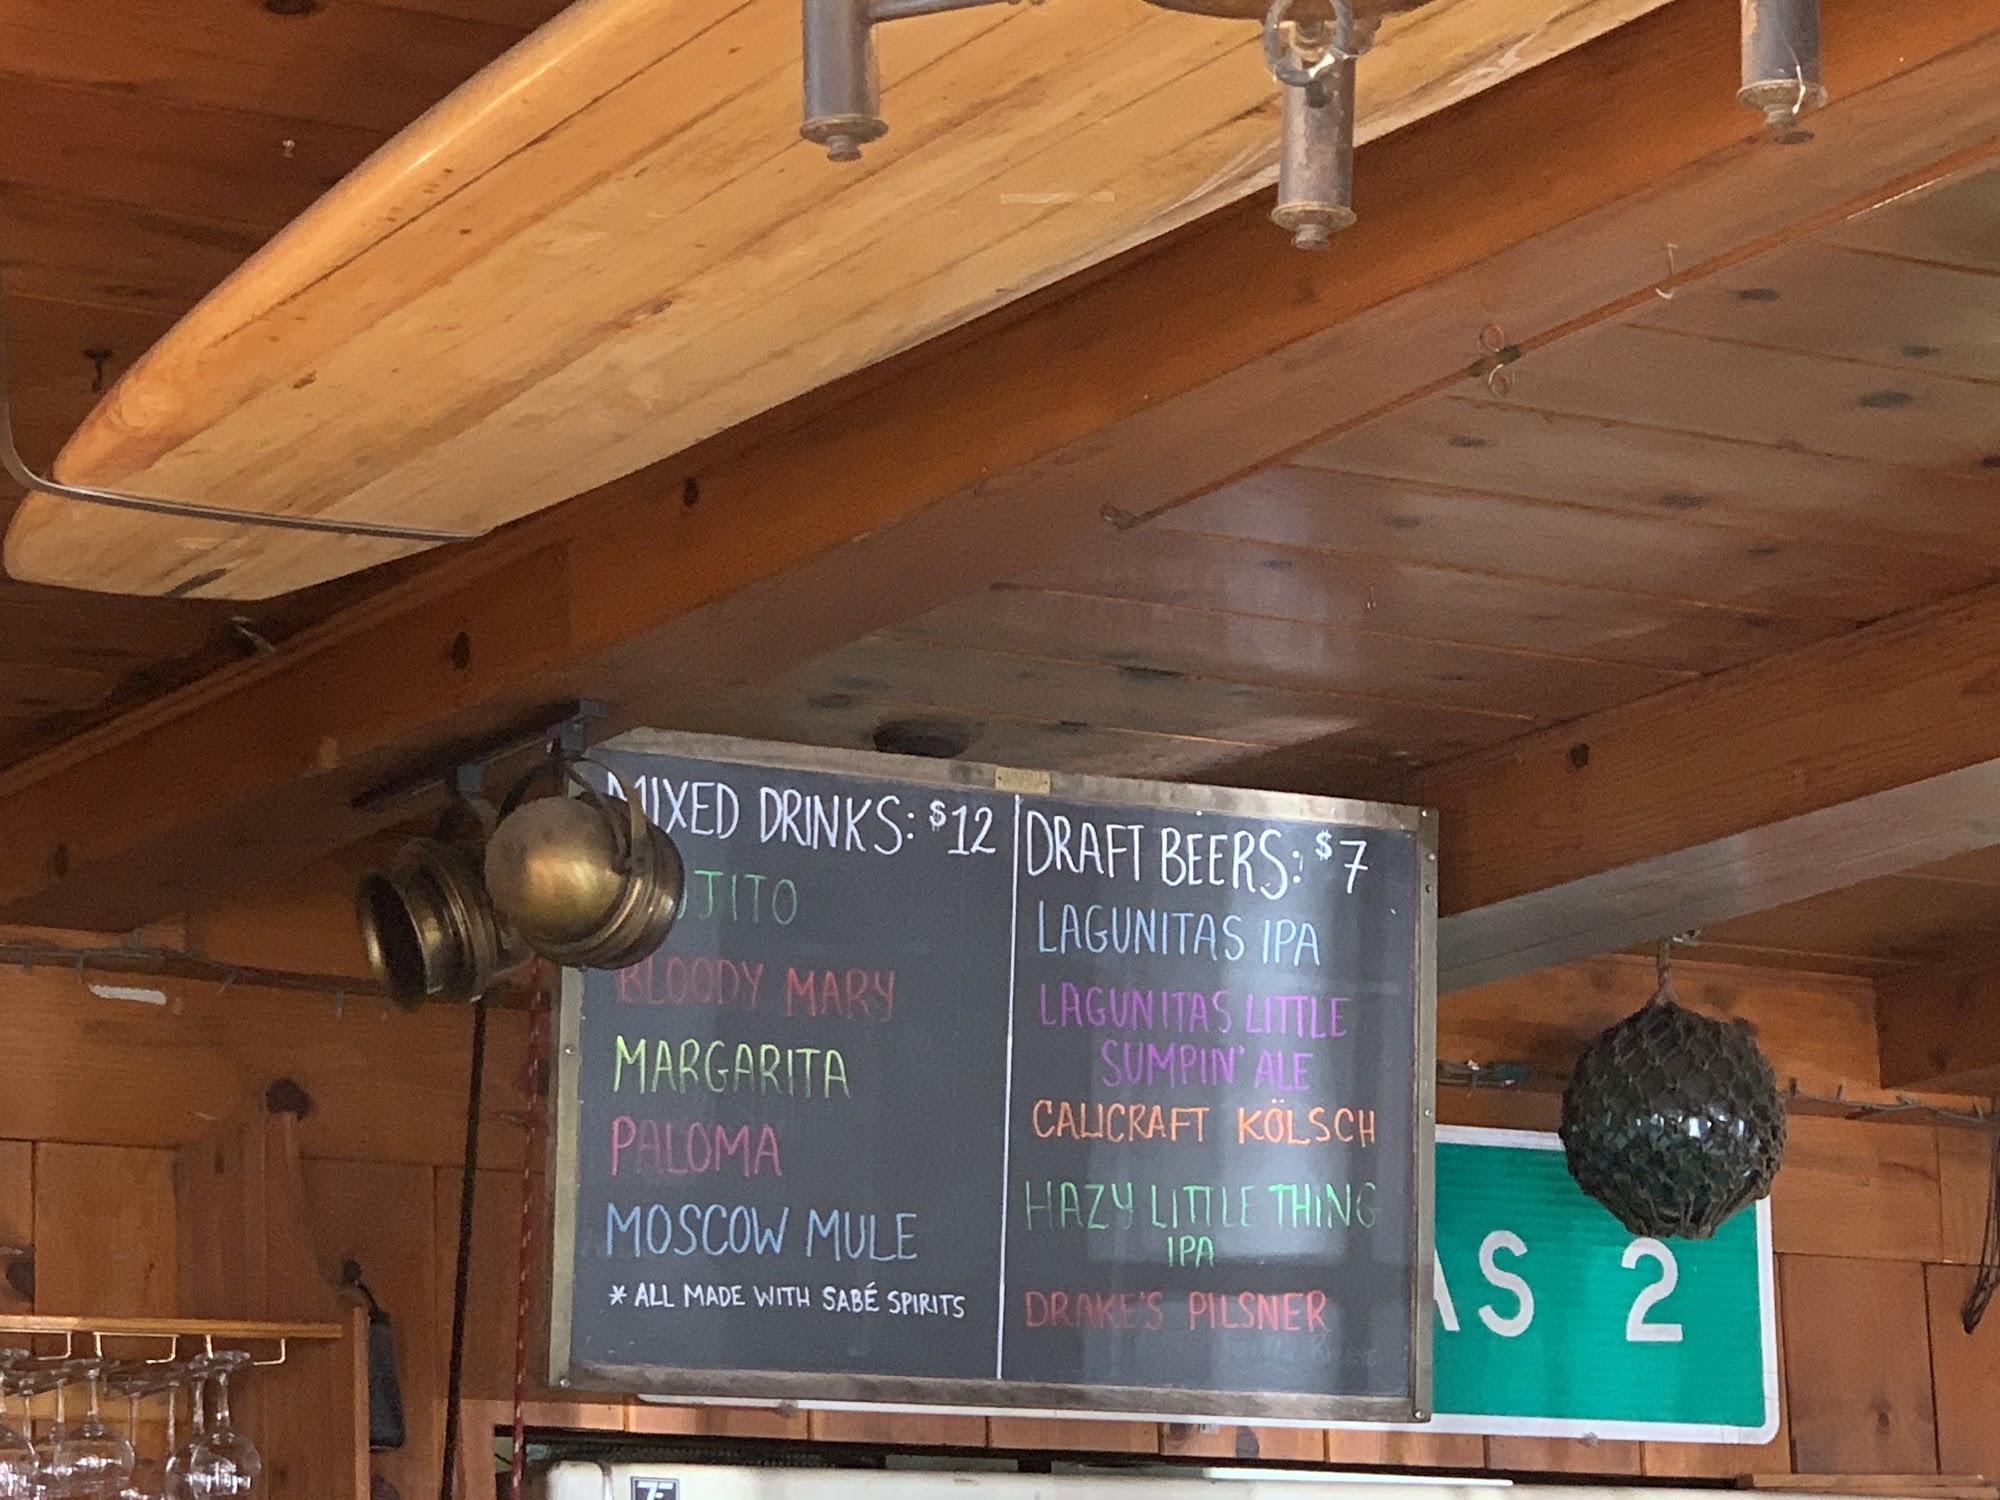 MIXED DRINKS: $12
OJITO
BLOODY MARY
MARGARITA
PALOMA
MOSCOW MULE
* ALL MADE WITH SABÉ SPIRITS
DRAFT BEERS: $7
LAGUNITAS IPA
LAGUNITAS LITTLE
SUMPIN' ALE
CALICRAFT KÖLSCH
HAZY LITTLE THING
IPA
DRAKE'S PILSNER
AS 2